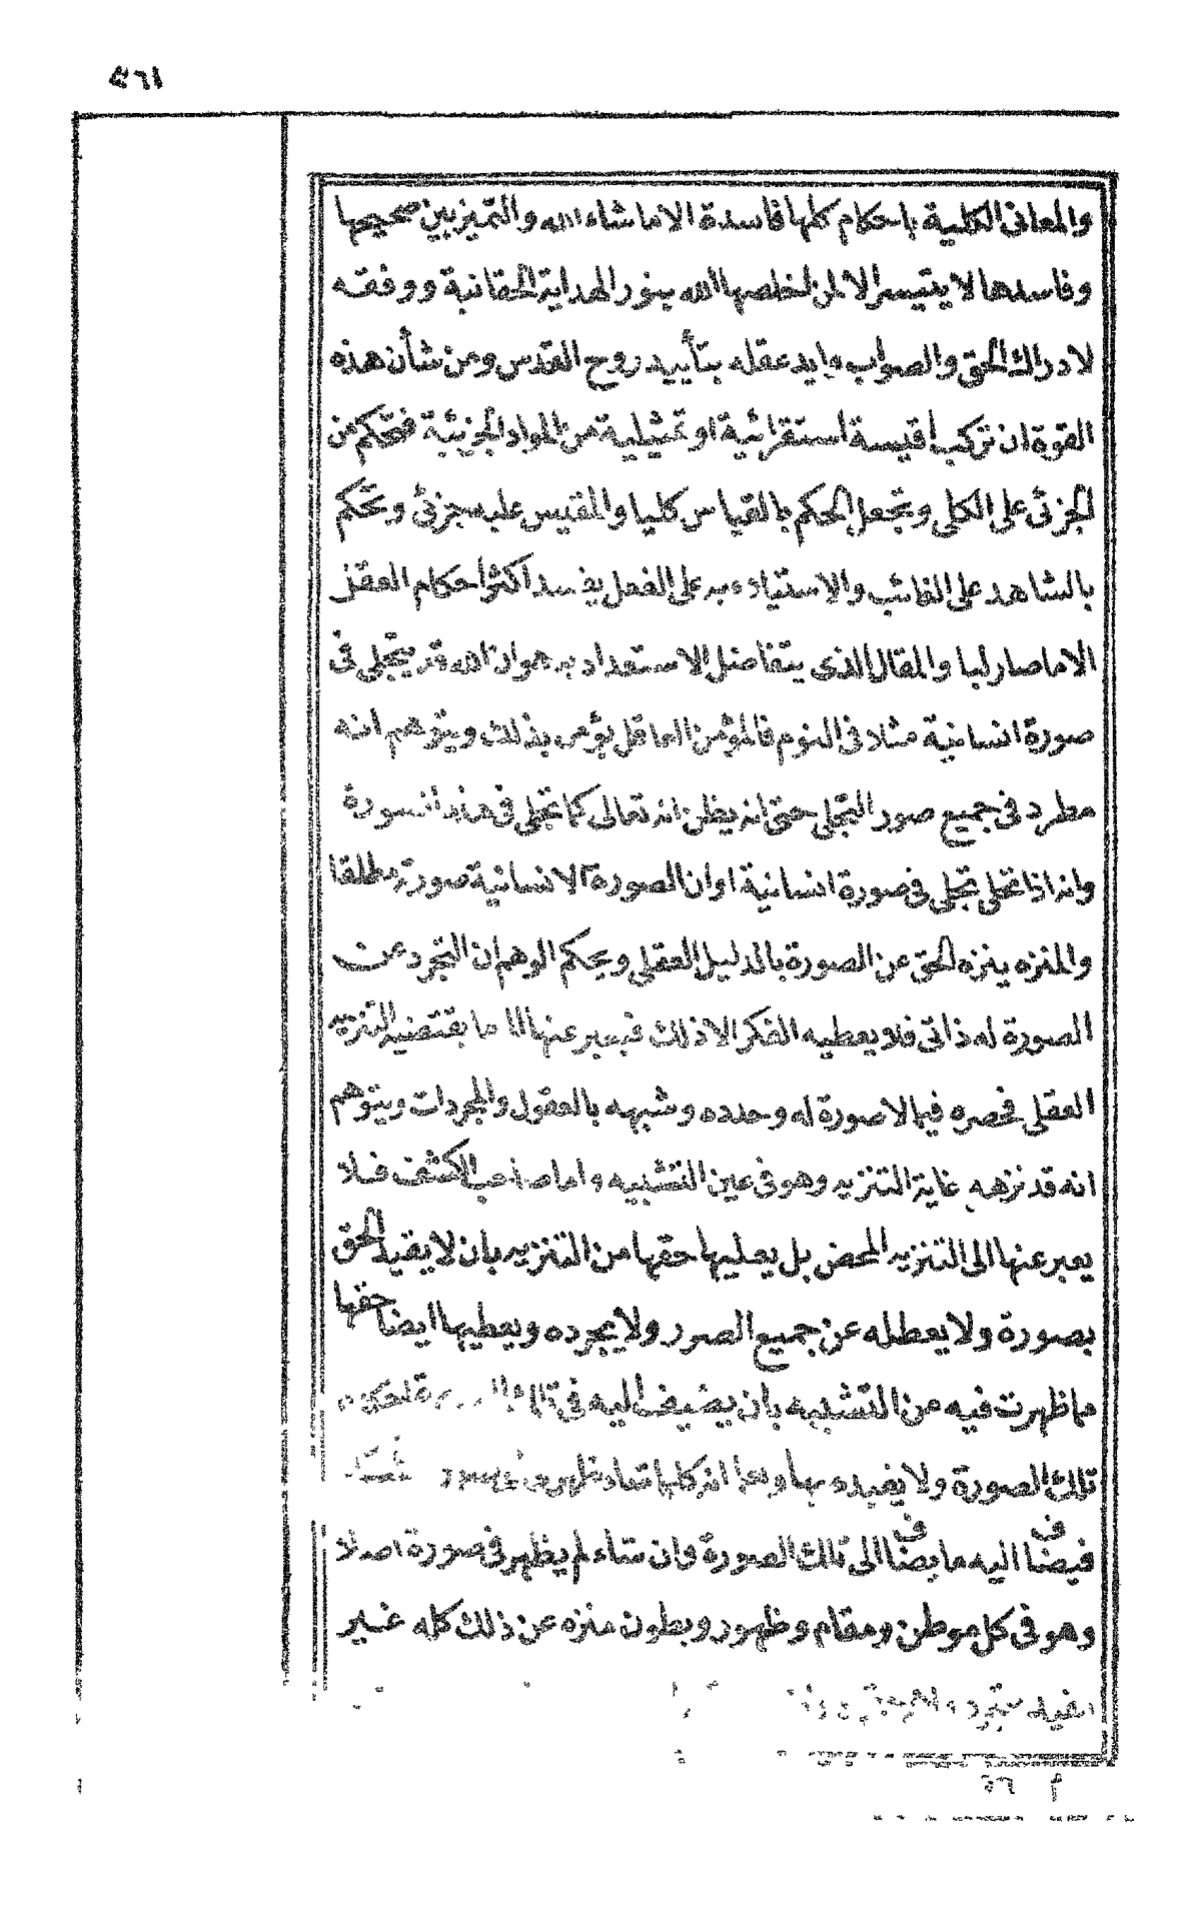 ٤٦١
والمعانى الكلية باحكام كلها فاسدة الا ما شاء الله والتميز بين صحيحها
وفاسدها لا يتيسر الا لمن اخلصها الله بنور الهداية الحقانية ووفقه
لادراك الحق والصواب وايد عقله بتأييد روح القدس ومن شأن هذه
القوة ان تركب اقيسة استقرائية او تمثيلية من المواد الجزئية فتحكم من
الجزئى على الكلى وتجعل الحكم بالقياس كليا والمقيس عليه جزئى وتحكم
بالشاهد على الغائب والاستياده به على الفعل يفسد اكثر احكام العقل
الا ما صار لبا والمقال الذى يتفاضل الاستعداد به هو ان الله قد يتجلى فى
صورة انسانية مثلا فى النوم فالمؤمن العاقل يؤمن بذلك ويتوهم انه
مطرد فى جميع صور التجلى حتى انه يظن انه تعالى كما تجلى فى هذه الصورة
وانه اذا تجلى تجلى فى صورة انسانية او ان الصورة الانسانية صورته مطلقا
والمنزه ينزه الحق عن الصورة بالدليل العقلى ويحكم الوهم ان التجرد عن
الصورة له ذاتى فلا يعطيه الفكر الا ذلك فيعبر عنها الى ما يقتضيه التنزيه
العقلى فحصره فيما لا صورة له وحدده وشبهه بالعقول والمجردات ويتوهم
انه قد نزهه غاية التنزيه وهو فى عين التشبيه واما صاحب الكشف فلا
يعبر عنها الى التنزيه المحض بل يعطيها حقها من التنزيه بان لا يقيد الحق
بصورة ولا يعطله عن جميع الصور ولا يجرده ويعطيها ايضا حقها
مما ظهرت فيه من التشبيه بان يضيف اليه فى تلك
تلك الصورة ولا يقيده بها
فيضاف اليه ما يضاف الى تلك الصورة وان شاء لم يظهر فى صورة اصلا
وهو فى كل موطن ومقام وظهور وبطون منزه عن ذلك كله غير
م ٥٦